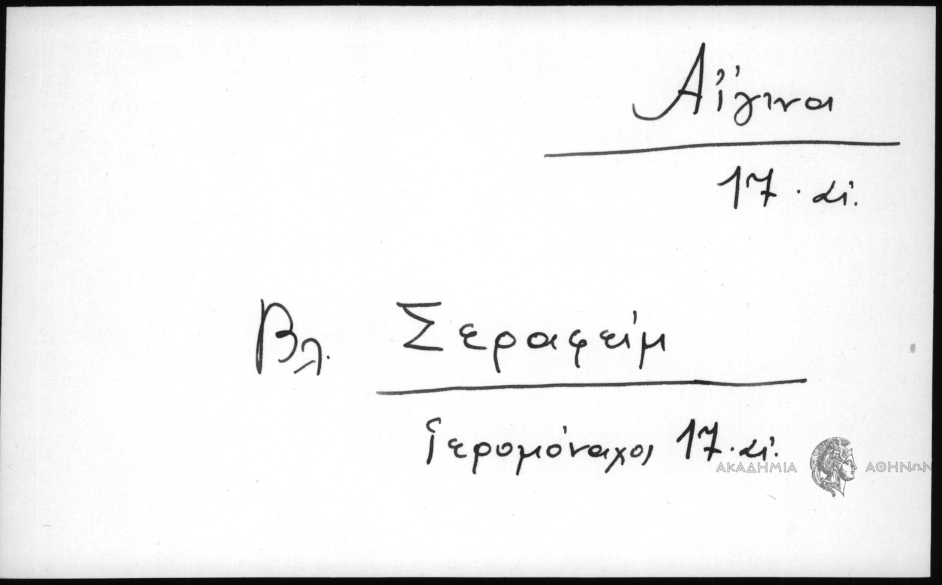 Αἴγινα
17. αἰ.
Βλ. Σεραφείμ
ἱερομόναχος 17. αἰ.
ΑΚΑΔΗΜΙΑ ΑΘΗΝΩΝ